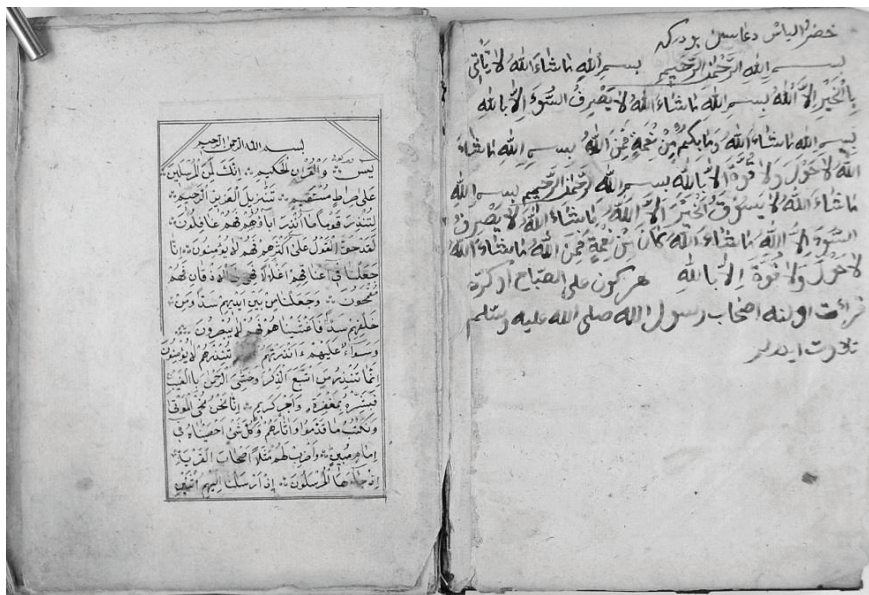 خضر والیاس دعاسیدر بودركه
بسم الله الرحمن الرحيم بسم الله ماشاء الله لا يأتي
بالخير الا الله بسم الله ماشاء الله لا يصرف السوء الا بالله
بسم الله ماشاء الله وما بكم من نعمة فمن الله بسم الله ماشاء
الله لا حول ولا قوة الا بالله بسم الله الرحمن الرحيم بسم الله
ماشاء الله لا يسوق الخير الا الله ماشاء الله لا يصرف
السوء الا الله ماشاء الله كان من نعمة فمن الله ماشاء الله
لا حول ولا قوة الا بالله هر كون على الصباح
قرائت اولنه اصحاب رسول الله صلى الله عليه وسلم
تلاوت ايدرلر
بسم الله الرحمن الرحيم
يس والقرآن الحكيم انك لمن المرسلين
على صراط مستقيم تنزيل العزيز الرحيم
لتنذر قوما ما انذر اباؤهم فهم غافلون
لقد حق القول على اكثرهم فهم لا يؤمنون انا
جعلنا في اعناقهم اغلالا فهي الى الاذقان فهم
مقمحون وجعلنا من بين ايديهم سدا ومن
خلفهم سدا فاغشيناهم فهم لا يبصرون
وسواء عليهم ءانذرتهم تنذرهم لا يؤمنون
انما تنذر من اتبع الذكر وخشي الرحمن بالغيب
فبشره بمغفرة واجر كريم انا نحن نحي الموتى
ونكتب ما قدموا واثارهم وكل شئ احصيناه في
امام مبين واضرب لهم مثلا اصحاب القرية
اذ جاءها المرسلون اذ ارسلنا اليهم اثنين